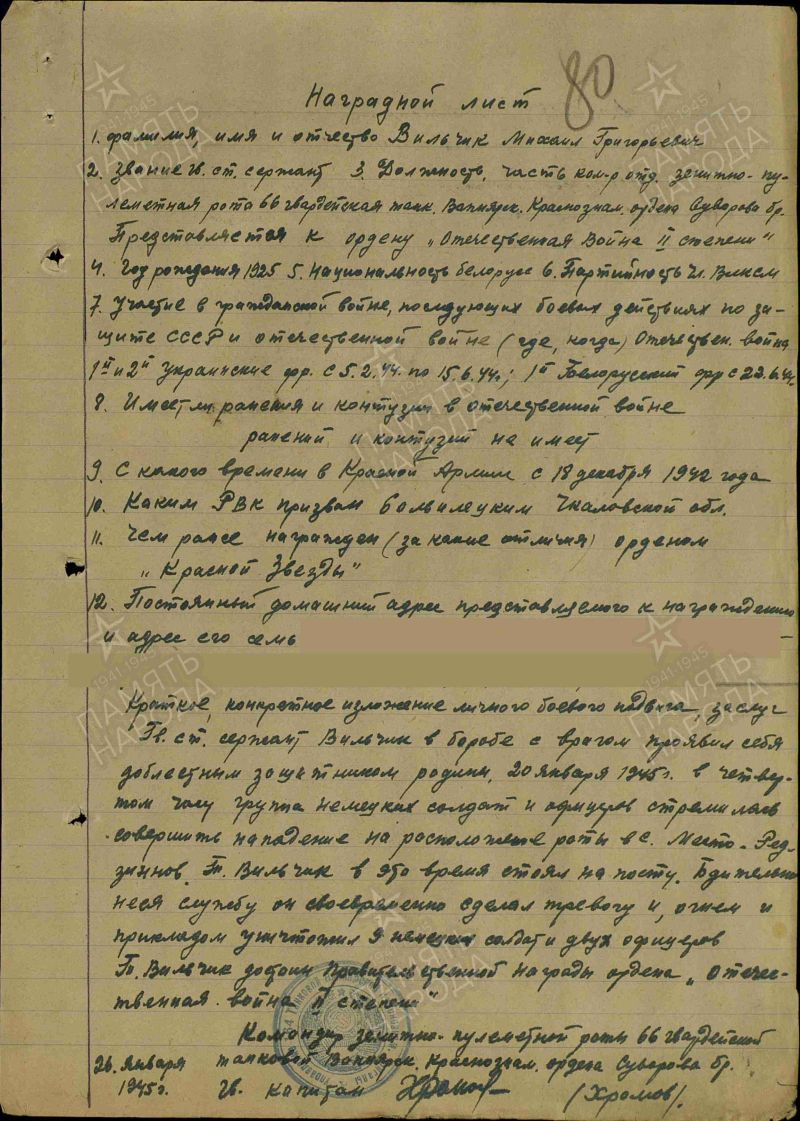 80
Наградной лист
1. фамилия, имя и отчество Вильчик Михаил Григорьевич
2. Звание гв. ст. сержант 3. Должность, часть ком-р отд. зенитно-пу-
леметная рота 66 гвардейская танк. Вапнярск. Краснознам. ордена Суворова бр.
Представляется к ордену „Отечественная Война II степени"
4. Год рождения 1925 5. Национальность белорус 6. Партийность чл. ВЛКСМ
7. Участие в гражданской войне, последующих боевых действиях по за-
щите СССР и отечественной войне (где, когда) Отечествен. война
1й и 2й Украинские фр. с 5.2.44. по 15.6.44г; 1й Белорусский фр с 22.6.44г
8. Имеет ли ранения и контузии в отечественной войне
ранений и контузий не имеет
9. С какого времени в Красной Армии с 18 декабря 1942 года
10. Каким РВК призван Чкаловской обл.
11. Чем ранее награжден (за какие отличия) орденом
„Красной Звезды"
12. Постоянный домашний адрес представляемого к награждению
и адрес его семь
Краткое, конкретное изложение личного боевого подвига, заслуг
Гв. ст. сержант Вильчик в борьбе с врагом проявил себя
доблестным защитником родины, 20 января 1945г. в четвер-
том часу группа немецких солдат и офицеров стремилась
совершить нападение на расположение роты в с. Место-Ред-
зиннов. Тов. Вильчик в это время стоял на посту. Бдительно
неся службу он своевременно сделал тревогу и, огнем и
прикладом уничтожил 9 немецких солдат и двух офицеров
Т. Вильчик достоин правительственной награды ордена „Отече-
ственная война II степени"
Командир зенитно-пулеметной роты 66 гвардейской
26. Января танковой Вапнярск. Краснознам. ордена Суворова бр.
1945г. гв. капитан Хромов (Хромов).